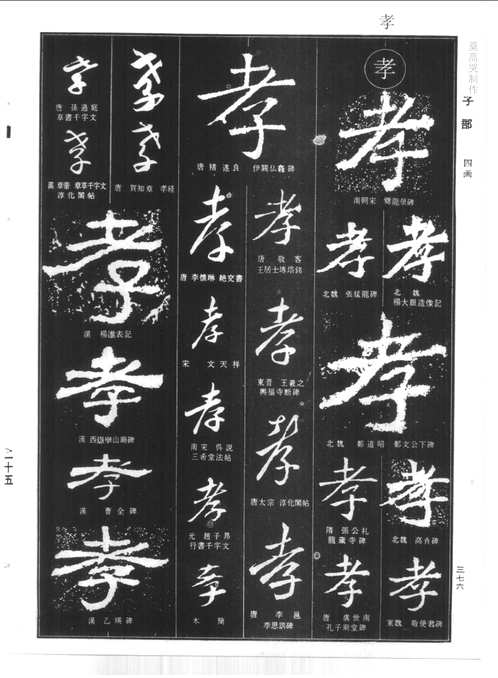 孝
莫高窟制作
子部
四画
三七六
二十五
孝
孝
南朝宋 爨龍顏碑
孝
北魏
楊大眼造像記
孝
北魏 張猛龍碑
孝
北魏 鄭道昭 鄭文公下碑
孝
北魏 高貞碑
孝
隋 張公礼
龍藏寺碑
孝
東魏 敬使君碑
孝
唐 虞世南
孔子廟堂碑
孝
唐 褚遂良 伊闕仏龕碑
孝
唐 敬客
王居士塼塔銘
孝
東晋 王羲之
興福寺断碑
孝
唐太宗 淳化閣帖
孝
唐 李邕
李思訓碑
孝
唐 李懐琳 絶交書
孝
宋 文天祥
孝
南宋 呉説
三希堂法帖
孝
元 趙子昂
行書千字文
孝
木簡
孝
唐 賀知章 孝経
孝
唐 孫過庭
草書千字文
孝
漢 章帝 章草千字文
淳化閣帖
孝
漢 楊淮表記
孝
漢 西嶽華山廟碑
孝
漢 曹全碑
孝
漢 乙瑛碑